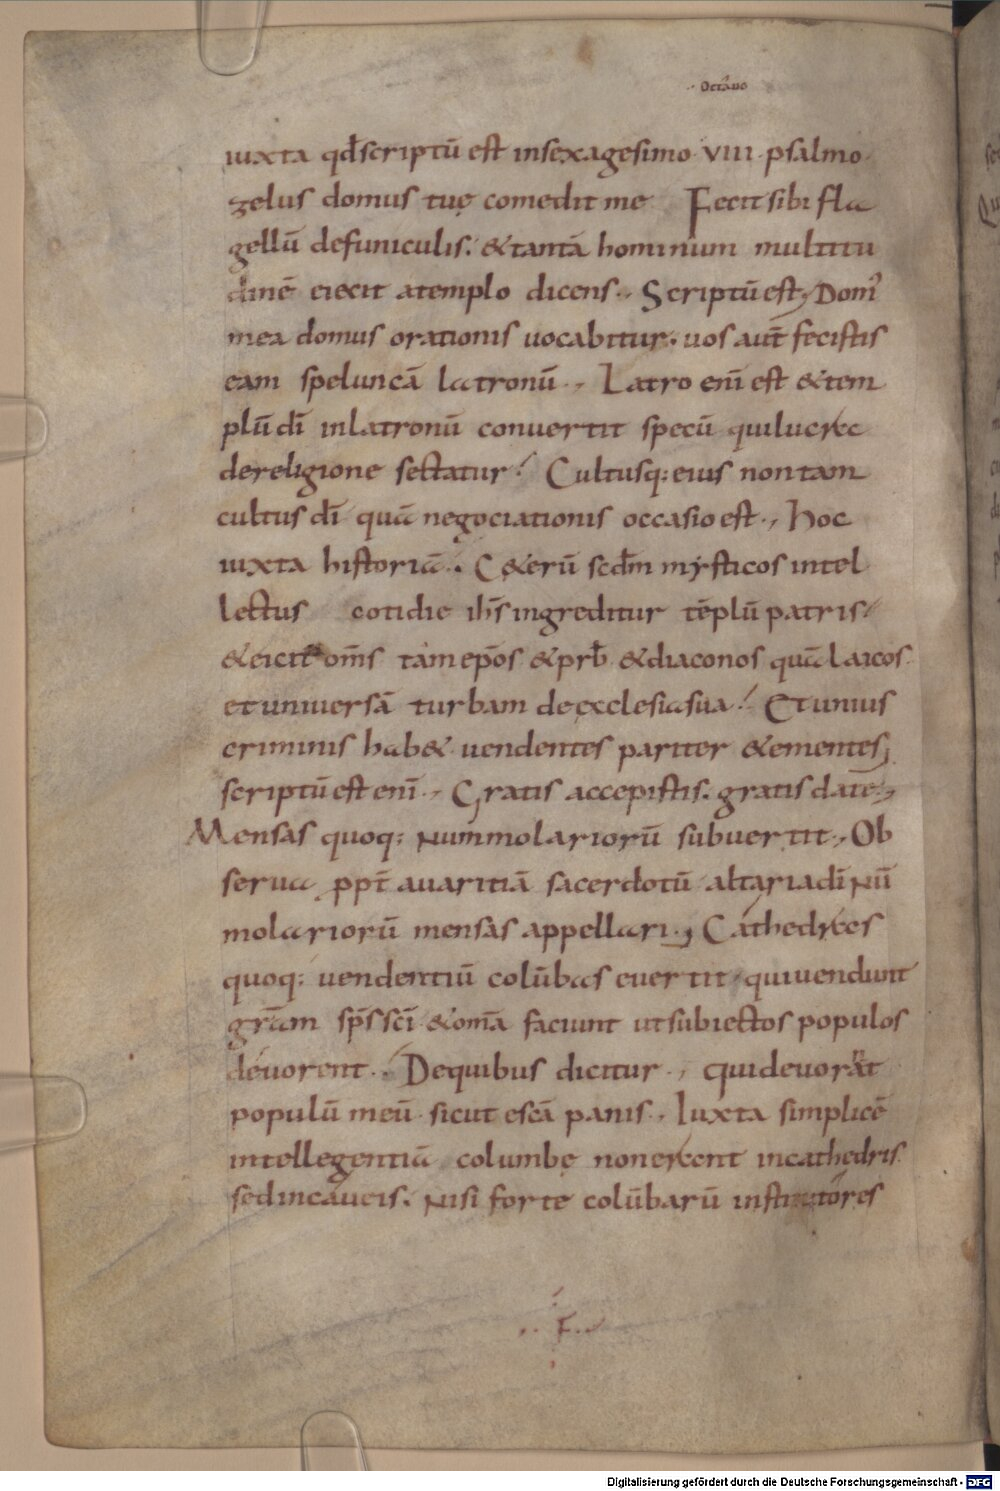 ·· Octāuo
iuxta qđ scriptū est insexagesimo · viii · psalmo ·
zelus domus tuę comedit me Fecit sibi fla
gellū defuniculis. &tantā hominum multitu
dinē eiecit atemplo dicens ·, Scriptū est, Dom'
mea domus orationis uocabitur. uos aut̄ fecistis
eam speluncā latronū ·, Latro enī est &tem
plū dī inlatronū conuertit specū qui lucra
dereligione sectatur! Cultusq; eius non tam
cultus dī quā negociationis occasio est ·, Hoc
iuxta historiā. C&erū scdm̄ mysticos intel
lectus cotidie ih̄s ingreditur tēplū patris/
&eicit om̄s tam ep̄os &prb̄ &diaconos quā laicos.
et uniuersā turbam de ęcclesia sua! Et unius
criminis hab& uendentes pariter &ementes;
scriptū est enī ·, Gratis accepistis. gratis date ·,
Mensas quoq; nummolariorū subuertit ·, Ob
serua ppt̄ auaritiā sacerdotū altaria dī nū
molariorū mensas appellari ·, Cathedras
quoq; uendentiū colūbas euertit · qui uendunt
grām sp̄s sc̄i &om̄a faciunt ut subiectos populos
deuorent. Dequibus dicitur ·, qui deuorant
populū meū sicut escā panis ·, Iuxta simplicē
intellegentiā columbę non erant incathedris.
sed incaueis. nisi forte colūbarū institutores
·· F ··
Digitalisierung gefördert durch die Deutsche Forschungsgemeinschaft - DFG